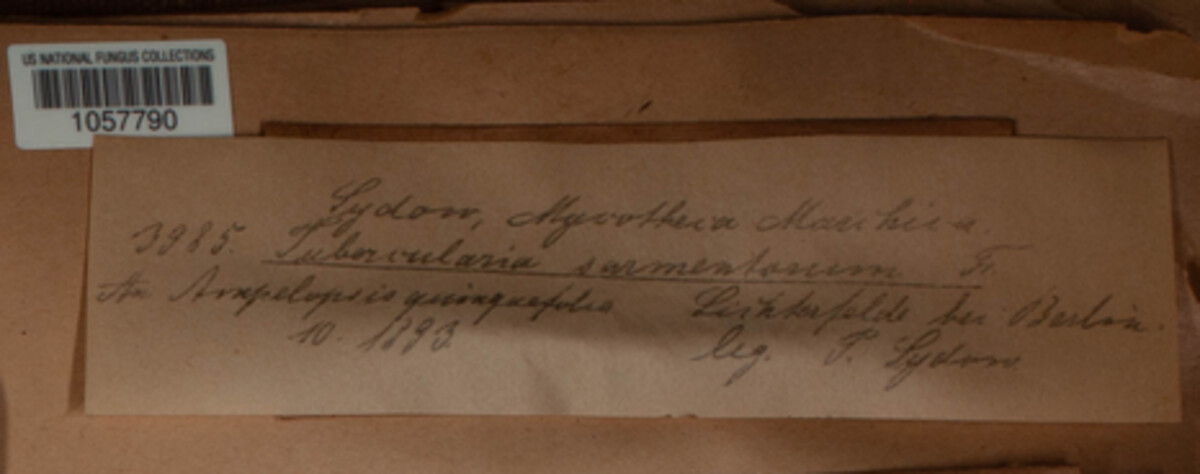 US NATIONAL FUNGUS COLLECTIONS
1057790
Sydow, Mycotheca Marchica.
3985. Tubercularia sarmentorum Fr.
An Ampelopsis quinquefolia Lichterfelde bei Berlin.
10. 1893. leg. P. Sydow